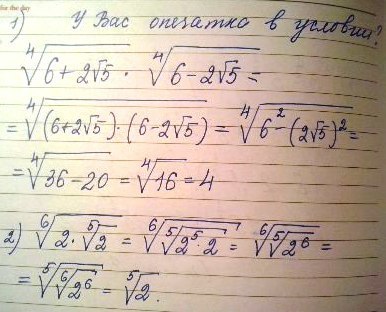 for the day
1) У Вас опечатка в условии?
⁴√(6+2√5) · ⁴√(6-2√5) =
= ⁴√((6+2√5)·(6-2√5)) = ⁴√(6²-(2√5)²) =
= ⁴√(36-20) = ⁴√16 = 4
2) ⁶√(2·⁵√2) = ⁶√(⁵√(2⁵·2)) = ⁶√(⁵√(2⁶)) =
= ⁵√(⁶√(2⁶)) = ⁵√2.